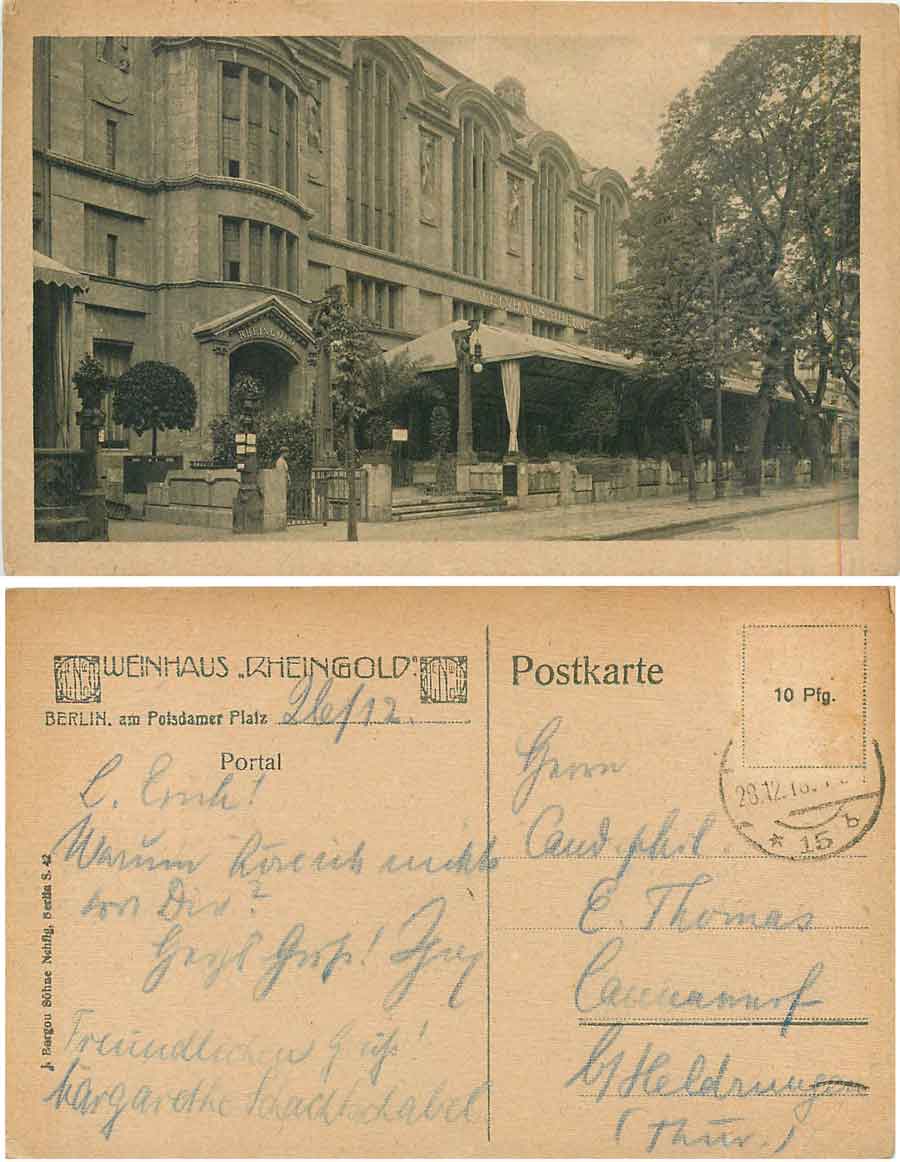 RHEINGOLD
WEINHAUS RHEINGOLD
WEINHAUS „RHEINGOLD".
BERLIN. am Potsdamer Platz 26/12.
Portal
L. Erich!
Warum höre ich nichts
von Dir?
Herzl. Gruß!
Freundlichen Gruß!
Margarethe Schachtschabel
J. Bargou Söhne Nchflg, Berlin S. 42
Postkarte
10 Pfg.
28.12.18.
* 15 b
Herrn
Cand. phil.
E. Thomas
Cannawurf
b/ Heldrungen
(Thür.)